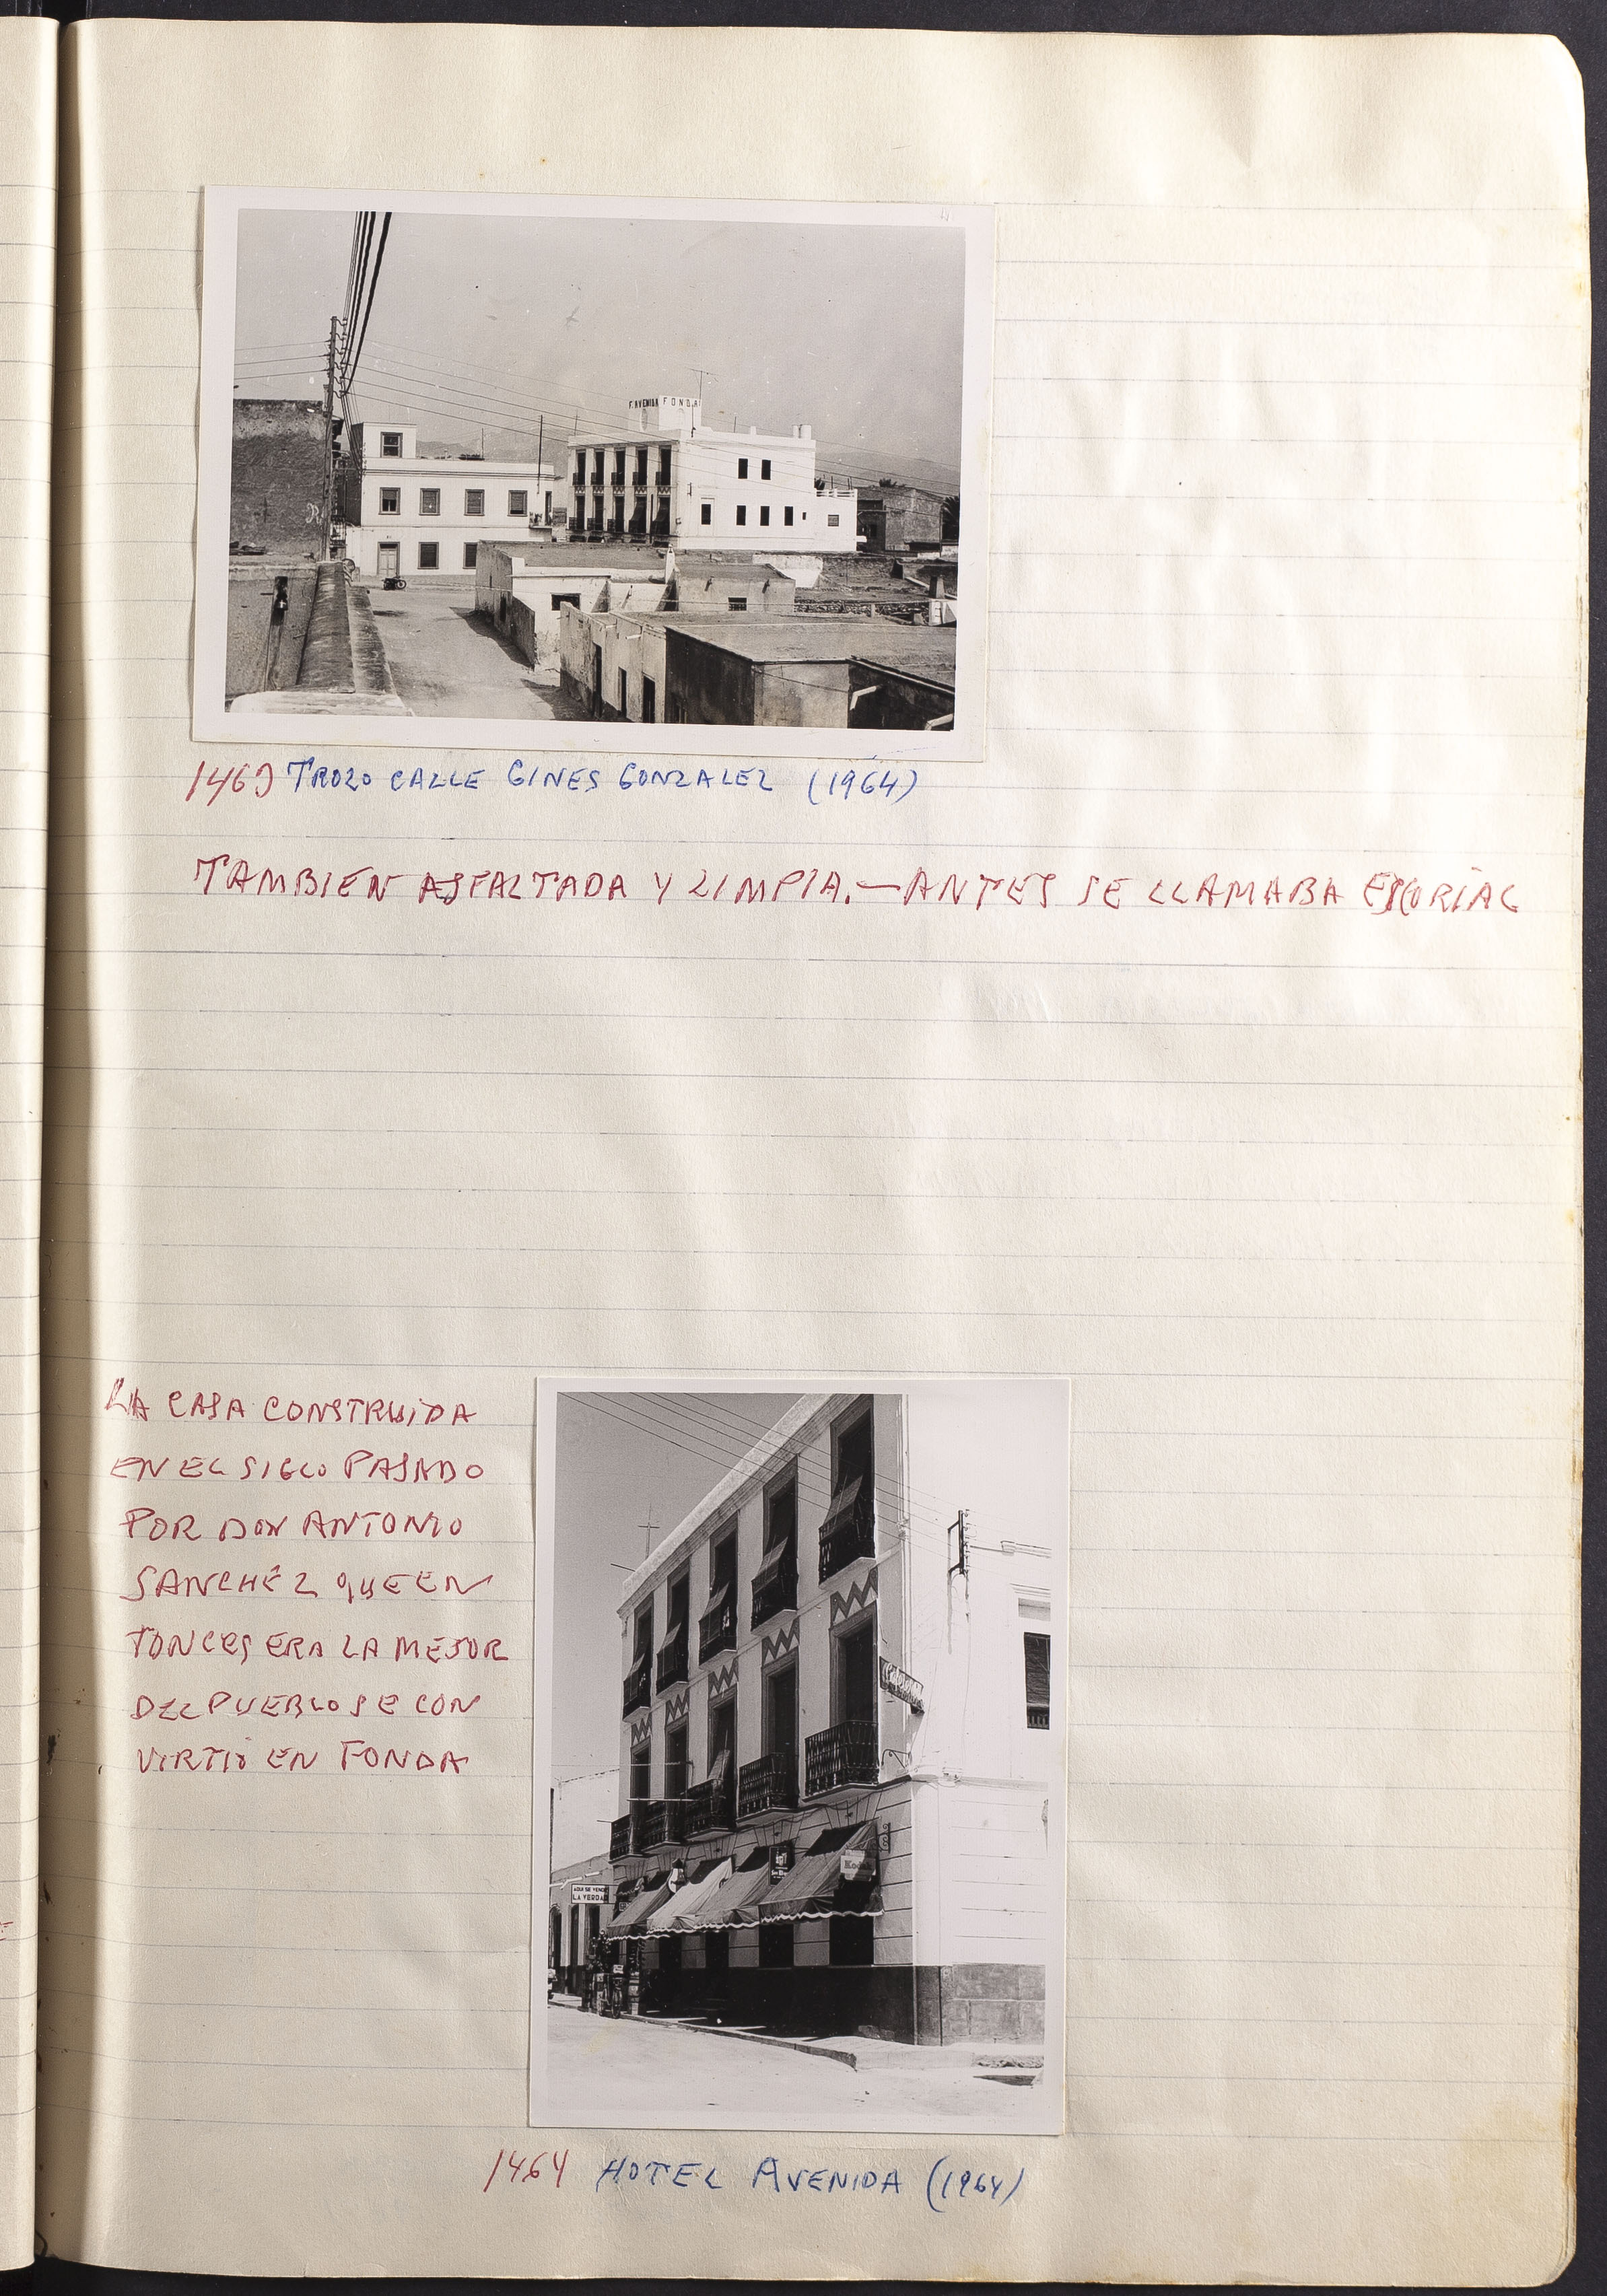 F. AVENIDA FONDA
1463 TROZO CALLE GINES GONZALEZ (1964)
TAMBIEN ASFALTADA Y LIMPIA.—ANTES SE LLAMABA ESCORIAL
LA CASA CONSTRUIDA
EN EL SIGLO PASADO
POR DON ANTONIO
SANCHEZ QUE EN
TONCES ERA LA MEJOR
DEL PUEBLO SE CON
VIRTIÓ EN FONDA
Kodak
AQUI SE VENDE
LA VERDAD
1464 HOTEL AVENIDA (1964)